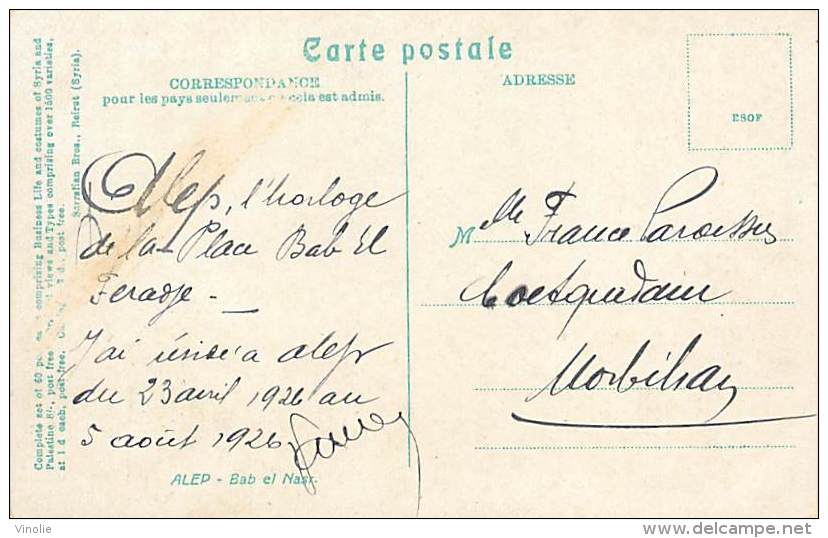 Carte postale
CORRESPONDANCE
pour les pays seulement cela est admis.
ADRESSE
Alep, l'horloge
de la Place Bab El
Feradje -
J'ai visité alep
du 23 avril 1926 au
5 août 1926
ALEP - Bab el Nasr.
Mlle France
Coetquidan
Morbihan
Sarrafian Bros., Beirut (Syria).
Complete set of 60 comprising Business Life and costumes of Syria and
Palestine post free views and Types comprising over 1500 varieties,
at 1 d each, post free. post free.
Vinolie
delcampe.net